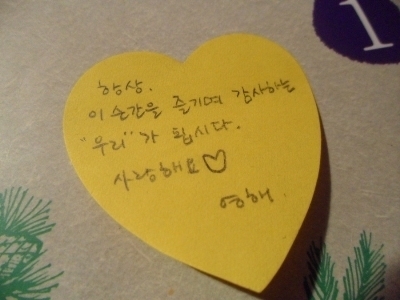 1
항상.
이 순간을 즐기며 감사하는
"우리"가 됩시다.
사랑해요♡
영해.